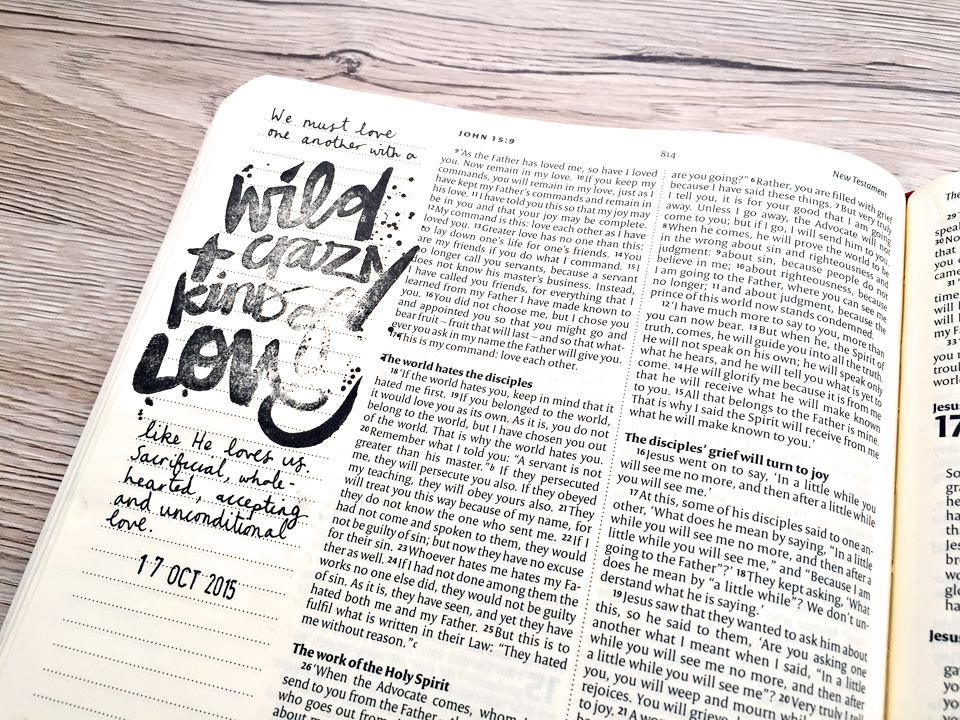 We must love
one another with a
wild
+ crazy
kind of
Love
like He loves us.
Sacrificial, whole-
hearted, accepting
and unconditional
love.
17 OCT 2015
JOHN 15:9
814
New Testament
9 'As the Father has loved me, so have I loved
you. Now remain in my love. 10 If you keep my
commands, you will remain in my love, just as I
have kept my Father's commands and remain in
his love. 11 I have told you this so that my joy may
be in you and that your joy may be complete.
12 My command is this: love each other as I have
loved you. 13 Greater love has no one than this:
to lay down one's life for one's friends. 14 You
are my friends if you do what I command. 15 I
no longer call you servants, because a servant
does not know his master's business. Instead,
I have called you friends, for everything that I
learned from my Father I have made known to
you. 16 You did not choose me, but I chose you
and appointed you so that you might go and
bear fruit – fruit that will last – and so that what-
ever you ask in my name the Father will give you.
17 This is my command: love each other.
The world hates the disciples
18 'If the world hates you, keep in mind that it
hated me first. 19 If you belonged to the world,
it would love you as its own. As it is, you do not
belong to the world, but I have chosen you out
of the world. That is why the world hates you.
20 Remember what I told you: "A servant is not
greater than his master."b If they persecuted
me, they will persecute you also. If they obeyed
my teaching, they will obey yours also. 21 They
will treat you this way because of my name, for
they do not know the one who sent me. 22 If I
had not come and spoken to them, they would
not be guilty of sin; but now they have no excuse
for their sin. 23 Whoever hates me hates my Fa-
ther as well. 24 If I had not done among them the
works no one else did, they would not be guilty
of sin. As it is, they have seen, and yet they have
hated both me and my Father. 25 But this is to
fulfil what is written in their Law: "They hated
me without reason."c
The work of the Holy Spirit
26 'When the Advocate comes, whom
send to you from the Father – the
who goes out from
about m
are you going?" 6 Rather, you are filled with grief
because I have said these things. 7 But very truly
I tell you, it is for your good that I am going
away. Unless I go away, the Advocate will not
come to you; but if I go, I will send him to you.
8 When he comes, he will prove the world to be
in the wrong about sin and righteousness and
judgment: 9 about sin, because people do not
believe in me; 10 about righteousness, because
I am going to the Father, where you can see me
no longer; 11 and about judgment, because the
prince of this world now stands condemned.
12 'I have much more to say to you, more than
you can now bear. 13 But when he, the Spirit of
truth, comes, he will guide you into all the truth.
He will not speak on his own; he will speak only
what he hears, and he will tell you what is yet to
come. 14 He will glorify me because it is from me
that he will receive what he will make known
to you. 15 All that belongs to the Father is mine.
That is why I said the Spirit will receive from me
what he will make known to you.'
The disciples' grief will turn to joy
16 Jesus went on to say, 'In a little while you
will see me no more, and then after a little while
you will see me.'
17 At this, some of his disciples said to one an-
other, 'What does he mean by saying, "In a little
while you will see me no more, and then after a
little while you will see me," and "Because I am
going to the Father"?' 18 They kept asking, 'What
does he mean by "a little while"? We don't un-
derstand what he is saying.'
19 Jesus saw that they wanted to ask him about
this, so he said to them, 'Are you asking one
another what I meant when I said, "In a little
while you will see me no more, and then after
a little while you will see me"? 20 Very truly I tell
you, you will weep and mourn while
rejoices. You will grieve
to joy. 21 A wo
The
29
speak
30 No
that
you
came
31
time
will
will
my
33
you
troub
world
Jesus
17
So
gra
he
ha
tha
Jes
bro
wo
glo
ha
Jesus